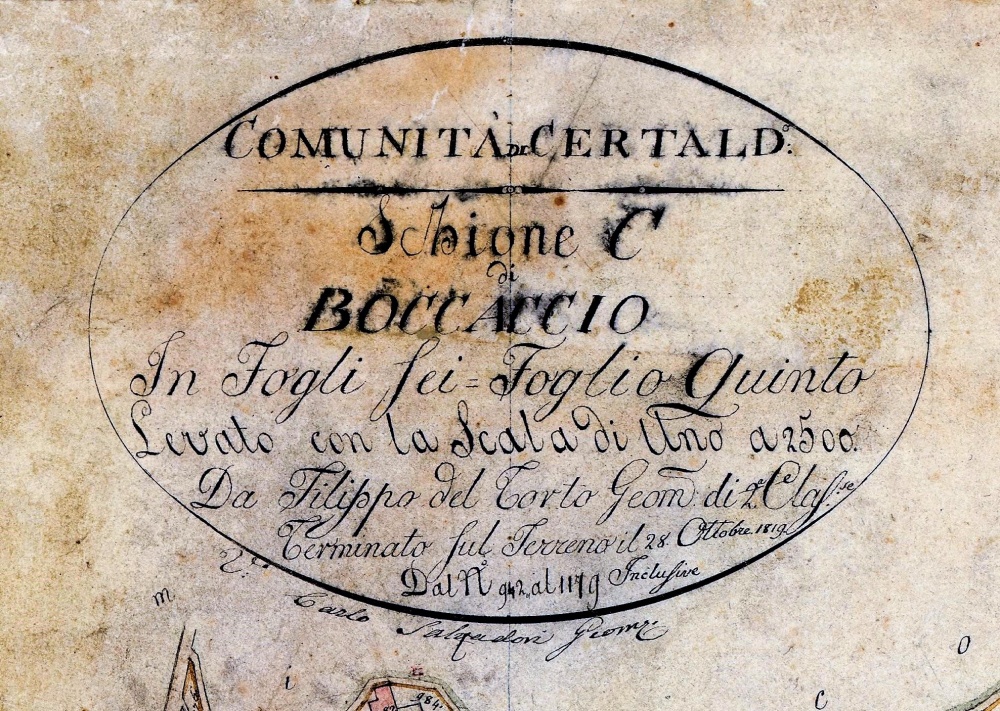 COMUNITÀ DI CERTALDO:
Sezione C
di
BOCCACCIO
In Fogli sei = Foglio Quinto
Levato con la Scala di Uno a 2500.
Da Filippo del Torto Geom. di 2.e Classe
Terminato sul Terreno il 28. Ottobre. 1819
Dal N.o 942. al 1179 Inclusive
V.to
Carlo Geom.
m
i
984
c
O